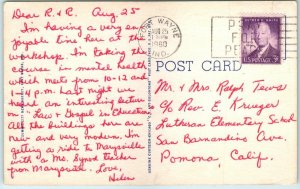 Dear R. & C.   Aug 25
I'm having a very enjoyable time here at the workshop. I'm taking the course in mental health which mets from 10-12 and 2-4 p.m. Last night we heard an interesting lecture on "Law & Gospel in Education."
All the buildings here are new and very modern. I'm getting a ride to Marysville with a Mo. Synod teacher from Marysville. Love,
Helen
WAYNE
AUG 25
1960
IND.
U.S. POSTAGE 3¢
POST CARD
Mr & Mrs Ralph Tews
c/o Rev. E. Krueger
Lutheran Elementary School
San Bernardino Ave.
Pomona, Calif.